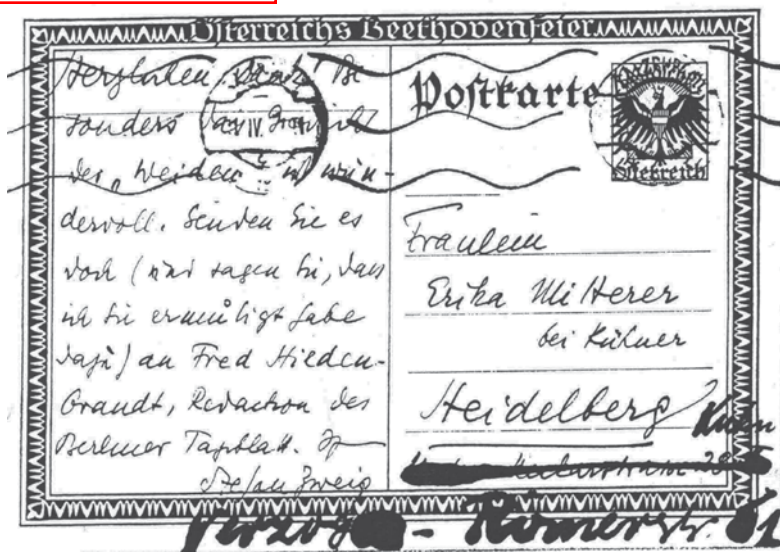 Österreichs Beethovenfeier
Herzlichen Dank! Be
sonders das Gedicht
der „Weiden" ist wun-
dervoll. Senden Sie es
doch (und sagen Sie, dass
ich Sie ermutigt habe
dazu) an Fred Hilden-
brandt, Redaction des
Berliner Tageblatt. Ihr
Stefan Zweig
Postkarte
Österreich
Fräulein
Erika Mitterer
bei Kühner
Heidelberg
Verzogen - Römerstr.